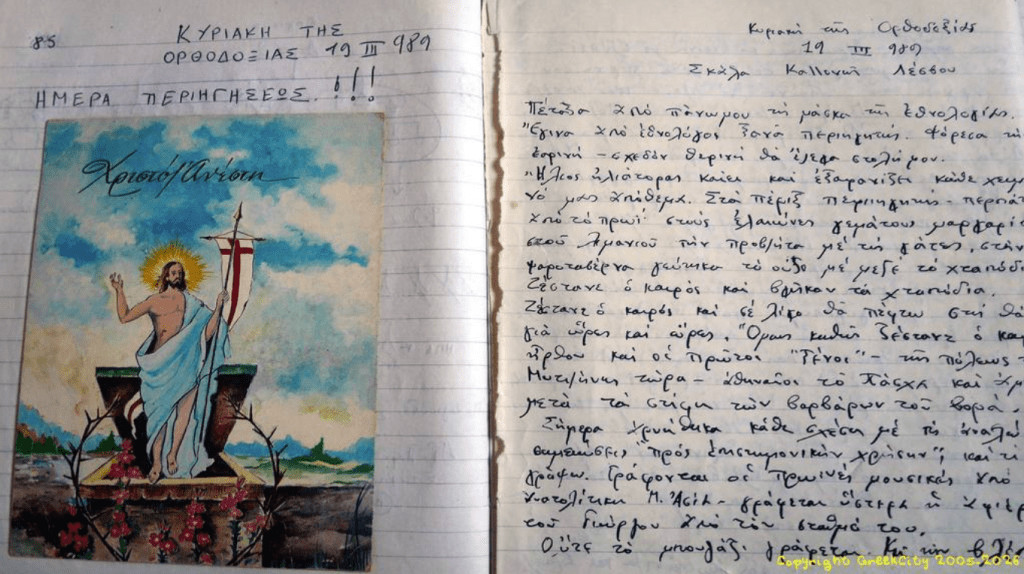 85
ΚΥΡΙΑΚΗ ΤΗΣ
ΟΡΘΟΔΟΞΙΑΣ 19 III 989
ΗΜΕΡΑ ΠΕΡΙΗΓΗΣΕΩΣ. !!!
Χριστός Ἀνέστη
Κυριακή τῆς Ὀρθοδοξίας
19 III 989
Σκάλα Καλλονῆς Λέσβου
Πέταξα ἀπό πάνω μου τή μάσκα τῆς ἐθνολογίας.
Ἔγινα ἀπό ἐθνολόγος ξανά περιηγητής. Φόρεσα τή
ἐαρινή – σχεδόν θερινή θά ἔλεγα στολή μου.
Ἥλιος ἡλιάτορας καίει καί ἐξαφανίζει κάθε χειμ
νό μας ἀπόθεμα. Στά πέριξ περιηγητής – περπάτ
ἀπό τό πρωί στούς ἐλαιῶνες γεμάτους μαργαρί
στοῦ λιμανιοῦ τήν προβλῆτα μέ τίς γάτες, στήν
ψαροταβέρνα γεύτηκα τό οὖζο μέ μεζέ τό χταπόδι
Ζέστανε ὁ καιρός καί βγῆκαν τά χταπόδια.
Ζέστανε ὁ καιρός καί σέ λίγο θά πέφτω στή θά
γιά ὧρες καί ὧρες. Ὅμως καθώς ζέστανε ὁ και
ἦρθαν καί οἱ πρῶτοι "ξένοι" – τῆς πόλεως τ
Μυτιλήνης τώρα – ἀθηναῖοι τό Πάσχα καί
μετά τά στίφη τῶν βαρβάρων τοῦ βορᾶ.
Σήμερα ἀρνήθηκα κάθε σχέση μέ τίς ἀναλυ
σημειώσεις "πρός ἐπιστημονικήν χρῆσιν", καί τί
γράψω. Γράφονται οἱ πρωινές μουσικές ἀπό
νατολίτικη Μ. Ἀσία – γράφεται ὕστερα ἡ ἀφιέρ
τοῦ Γιώργου ἀπό τόν σταθμό του.
Οὔτε τό μπουγάζι γράφεται. Καί τήν
Copyright GreekCity 2005-2026